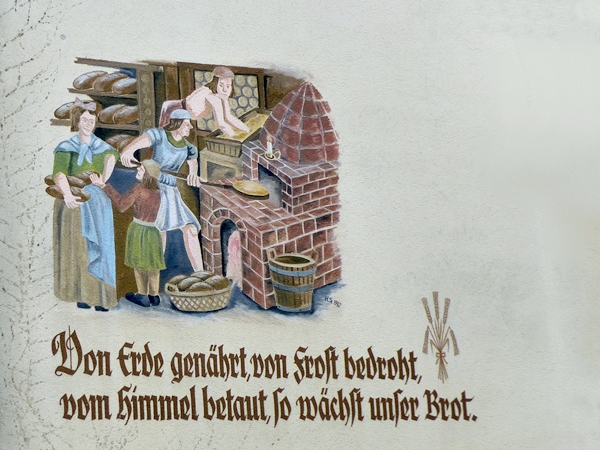 Von Erde genährt, von Frost bedroht,
vom Himmel betaut, so wächst unser Brot.